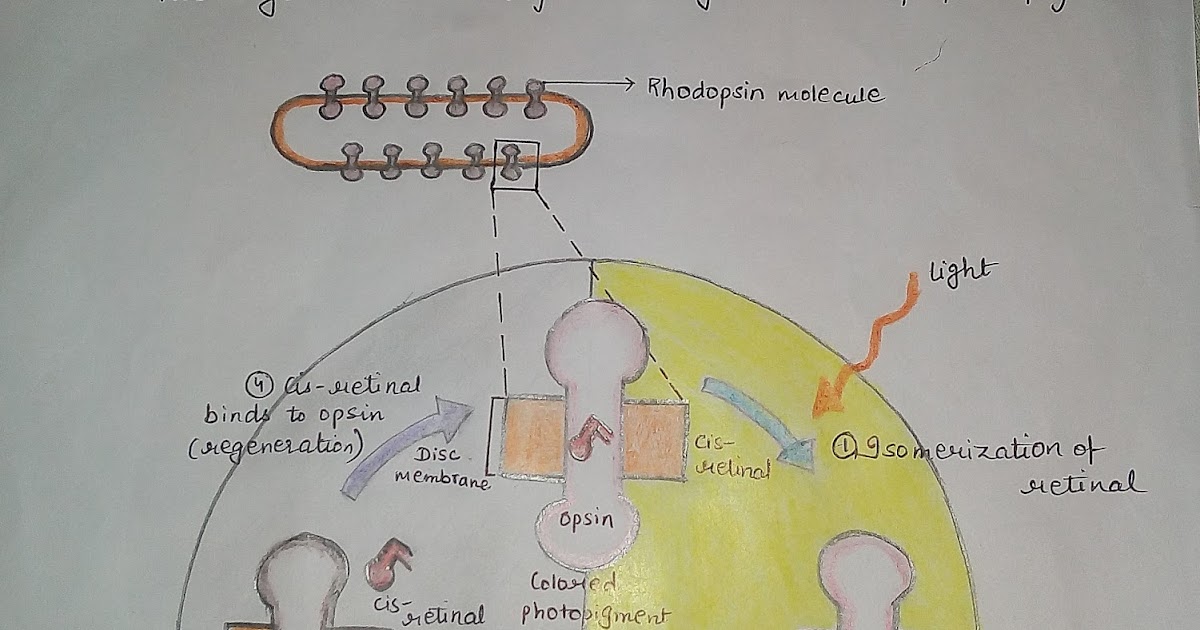 Rhodopsin molecule
light
④ Cis-retinal
binds to opsin
(regeneration)
Disc
membrane
Cis-
retinal
① Isomerization of
retinal
opsin
Colored
photopigment
cis-
retinal